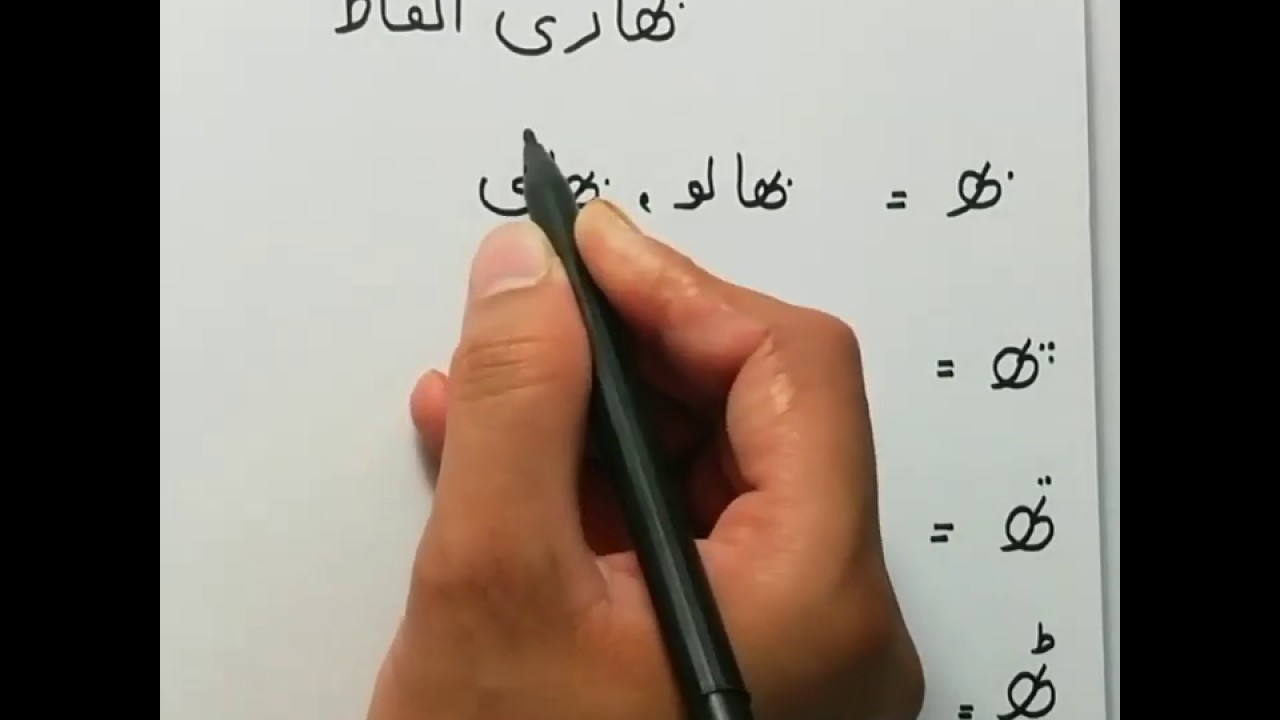 بھاری الفاظ
بھ = بھالو ،
پھ =
تھ =
ٹھ =